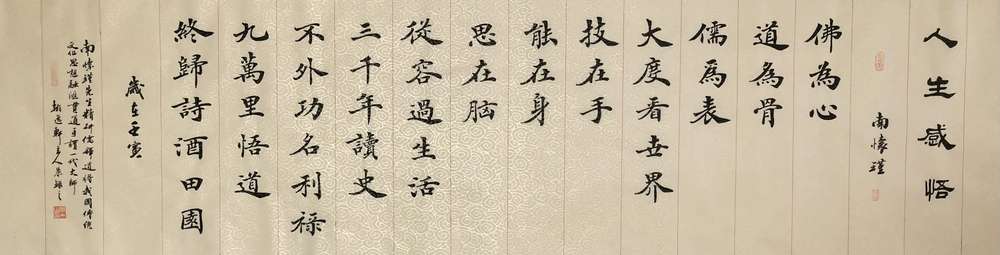 人生感悟
南懷瑾
佛為心
道為骨
儒為表
大度看世界
技在手
能在身
思在脑
從容過生活
三千年讀史
不外功名利禄
九萬里悟道
終歸詩酒田園
歲在壬寅
南懷瑾先生精研儒釋道將我國傳統
文化思想融滙貫通真謂一代大師